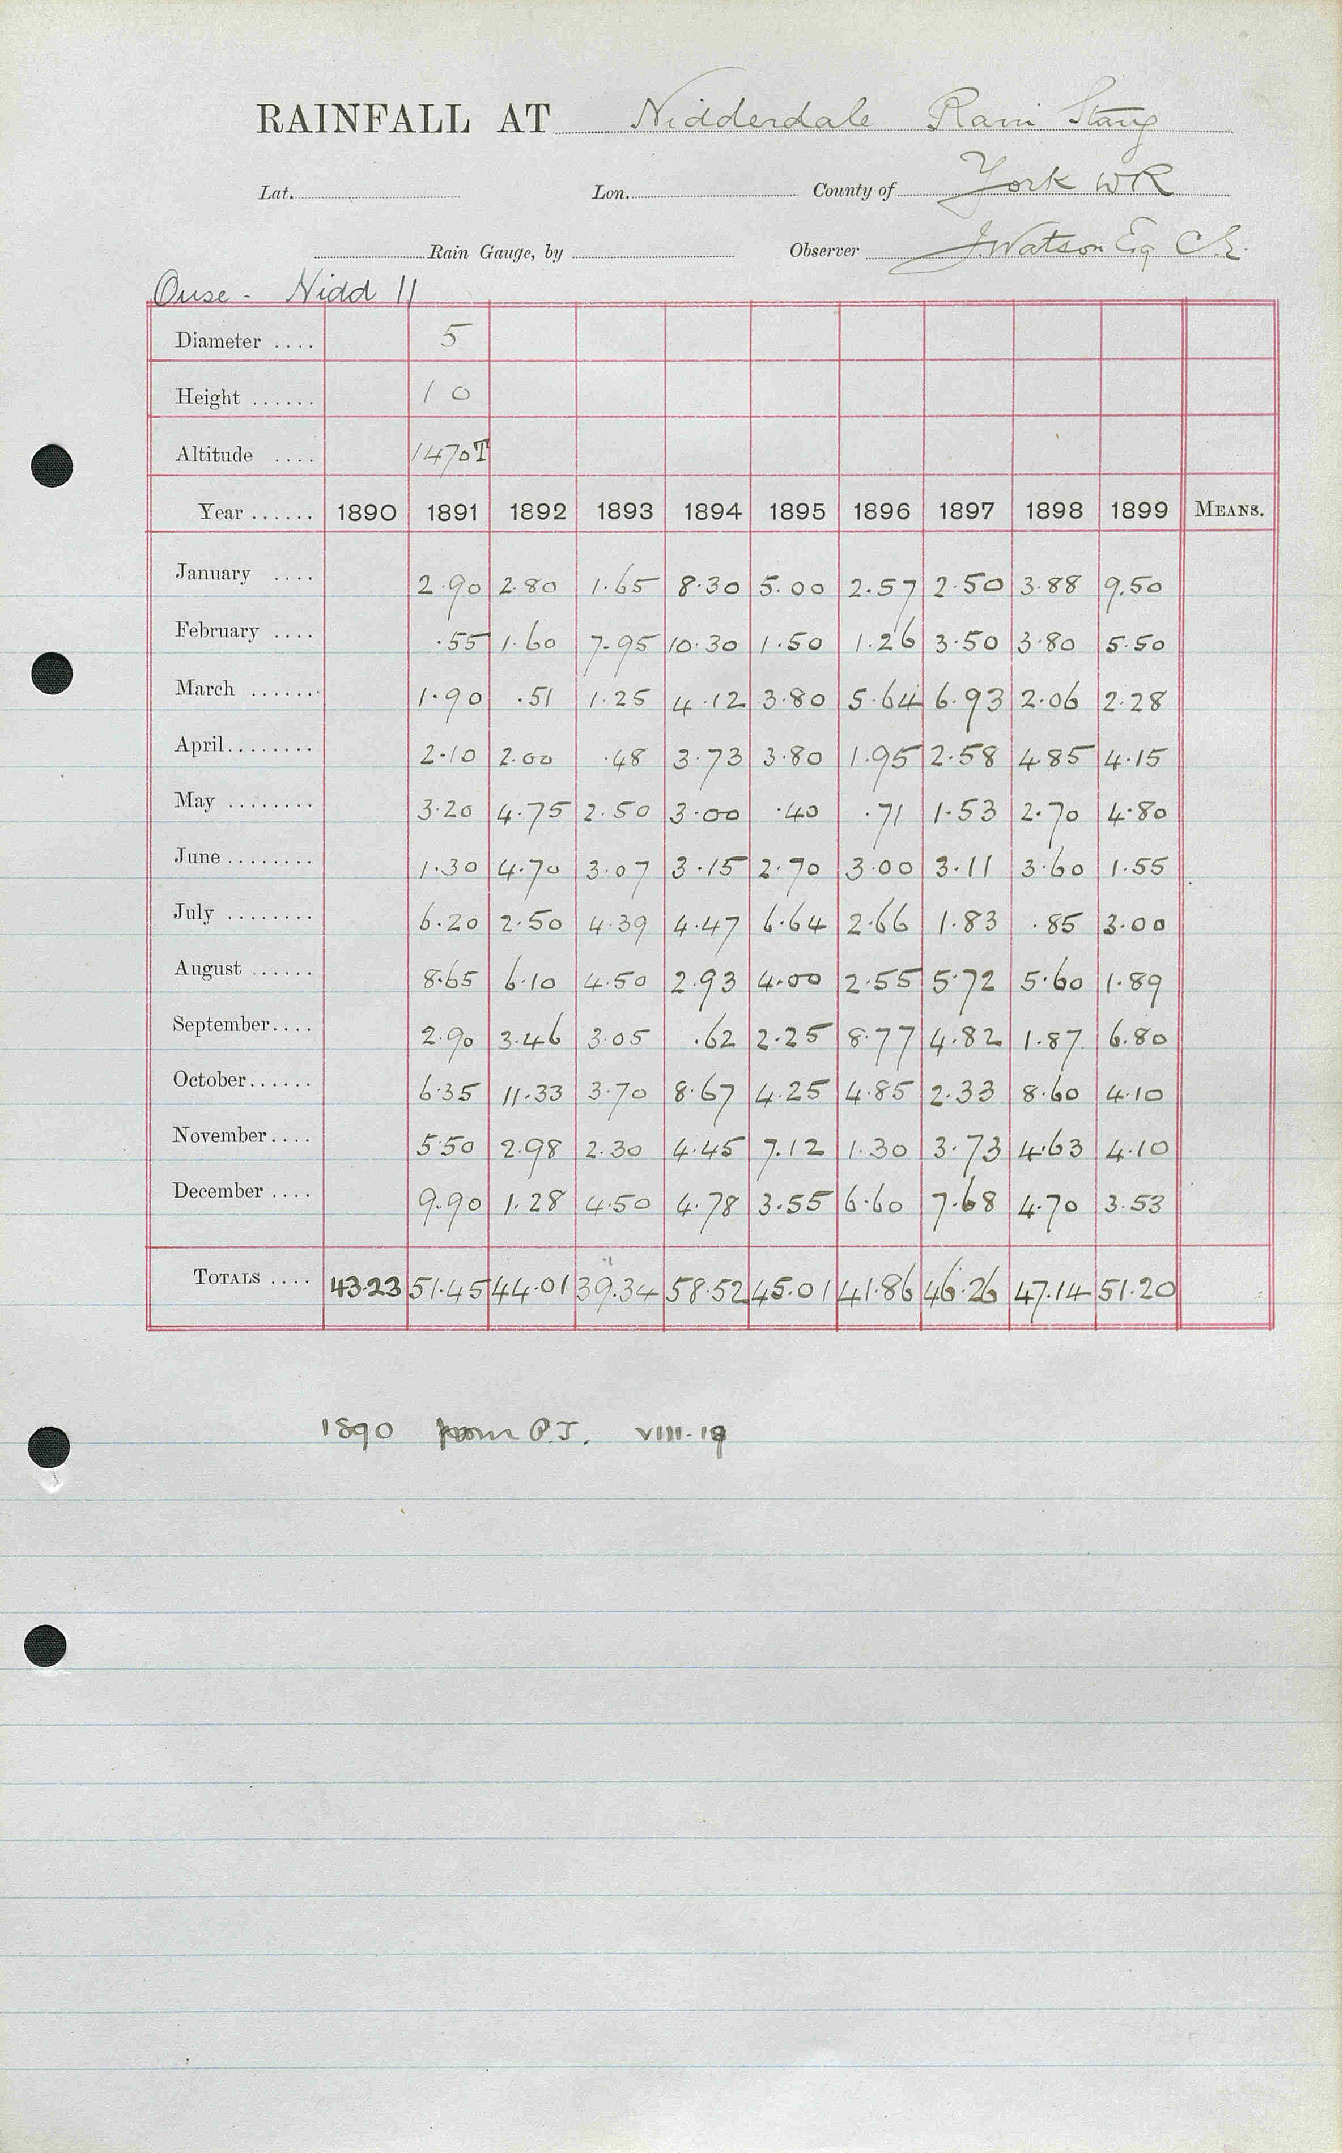 RAINFALL AT Nidderdale Rain Stang
Lat. Lon. County of York W R
Rain Gauge, by Observer J. Watson Esq C.E.
Ouse - Nidd 11
Diameter .... 5
Height ...... 1 0
Altitude .... 1470T
Year ...... 1890 1891 1892 1893 1894 1895 1896 1897 1898 1899 MEANS.
January .... 2.90 2.80 1.65 8.30 5.00 2.57 2.50 3.88 9.50
February .... .55 1.60 7.95 10.30 1.50 1.26 3.50 3.80 5.50
March ...... 1.90 .51 1.25 4.12 3.80 5.64 6.93 2.06 2.28
April ........ 2.10 2.00 .48 3.73 3.80 1.95 2.58 4.85 4.15
May ........ 3.20 4.75 2.50 3.00 .40 .71 1.53 2.70 4.80
June ........ 1.30 4.70 3.07 3.15 2.70 3.00 3.11 3.60 1.55
July ........ 6.20 2.50 4.39 4.47 6.64 2.66 1.83 .85 3.00
August ...... 8.65 6.10 4.50 2.93 4.00 2.55 5.72 5.60 1.89
September.... 2.90 3.46 3.05 .62 2.25 8.77 4.82 1.87 6.80
October...... 6.35 11.33 3.70 8.67 4.25 4.85 2.33 8.60 4.10
November.... 5.50 2.98 2.30 4.45 7.12 1.30 3.73 4.63 4.10
December .... 9.90 1.28 4.50 4.78 3.55 6.60 7.68 4.70 3.53
TOTALS .... 43.23 51.45 44.01 39.34 58.52 45.01 41.86 46.26 47.14 51.20
1890 from P.J. VIII. 19